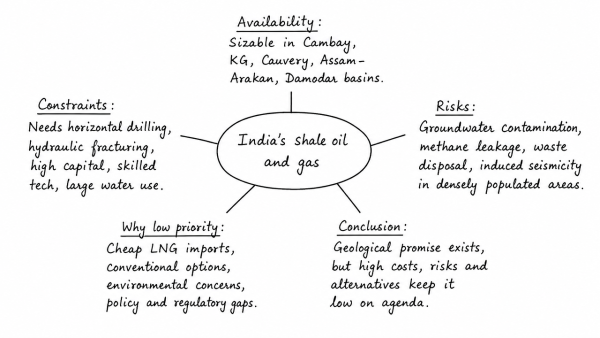 Availability:
Sizable in Cambay,
KG, Cauvery, Assam-
Arakan, Damodar basins.
Constraints:
Needs horizontal drilling,
hydraulic fracturing,
high capital, skilled
tech, large water use.
India's shale oil
and gas
Risks:
Groundwater contamination,
methane leakage, waste
disposal, induced seismicity
in densely populated areas.
Why low priority:
Cheap LNG imports,
conventional options,
environmental concerns,
policy and regulatory gaps.
Conclusion:
Geological promise exists,
but high costs, risks and
alternatives keep it
low on agenda.